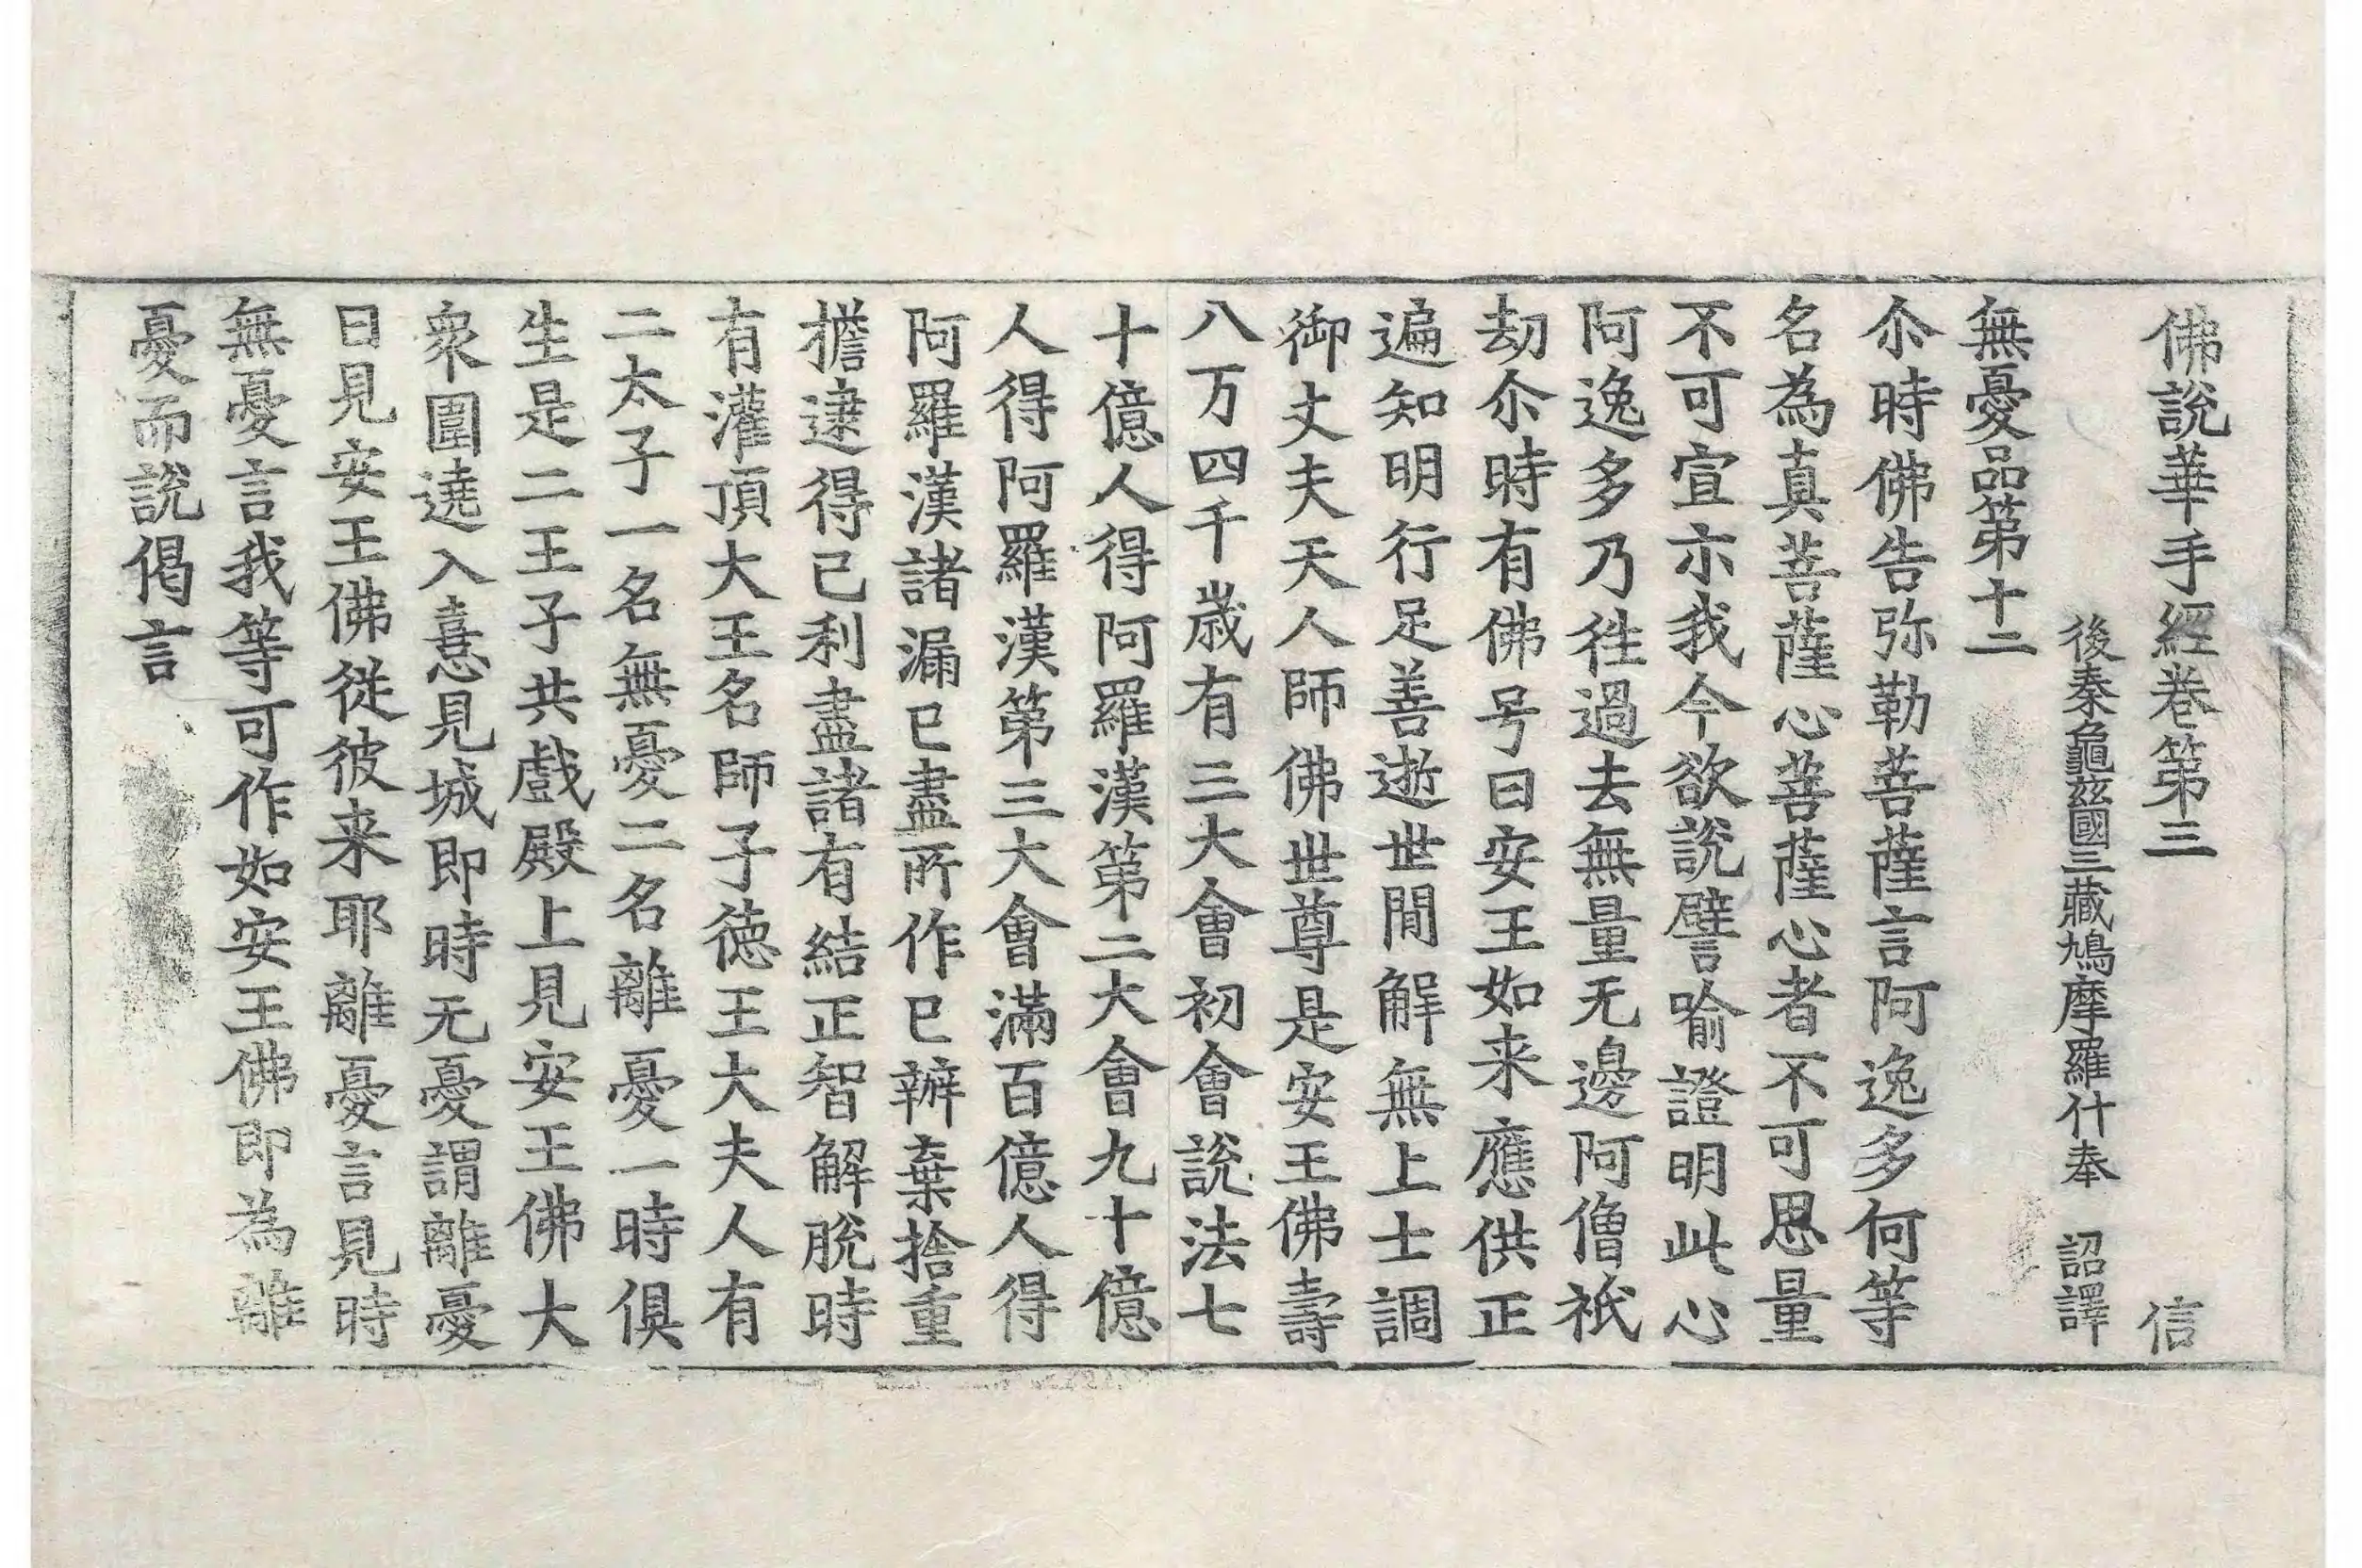 佛說華手經卷第三 信
後秦龜茲國三藏鳩摩羅什奉 詔譯
無憂品第十二
尒時佛告弥勒菩薩言阿逸多何等
名為真菩薩心菩薩心者不可思量
不可宣示我今欲說譬喻證明此心
阿逸多乃徃過去無量无邊阿僧祇
劫尒時有佛号曰安王如来應供正
遍知明行足善逝世間解無上士調
御丈夫天人師佛世尊是安王佛壽
八万四千歳有三大會初會說法七
十億人得阿羅漢第二大會九十億
人得阿羅漢第三大會滿百億人得
阿羅漢諸漏已盡所作已辦棄捨重
擔逮得己利盡諸有結正智解脫時
有灌頂大王名師子徳王大夫人有
二太子一名無憂二名離憂一時俱
生是二王子共戲殿上見安王佛大
衆圍遶入憙見城即時无憂謂離憂
曰見安王佛従彼来耶離憂言見時
無憂言我等可作如安王佛即為離
憂而說偈言